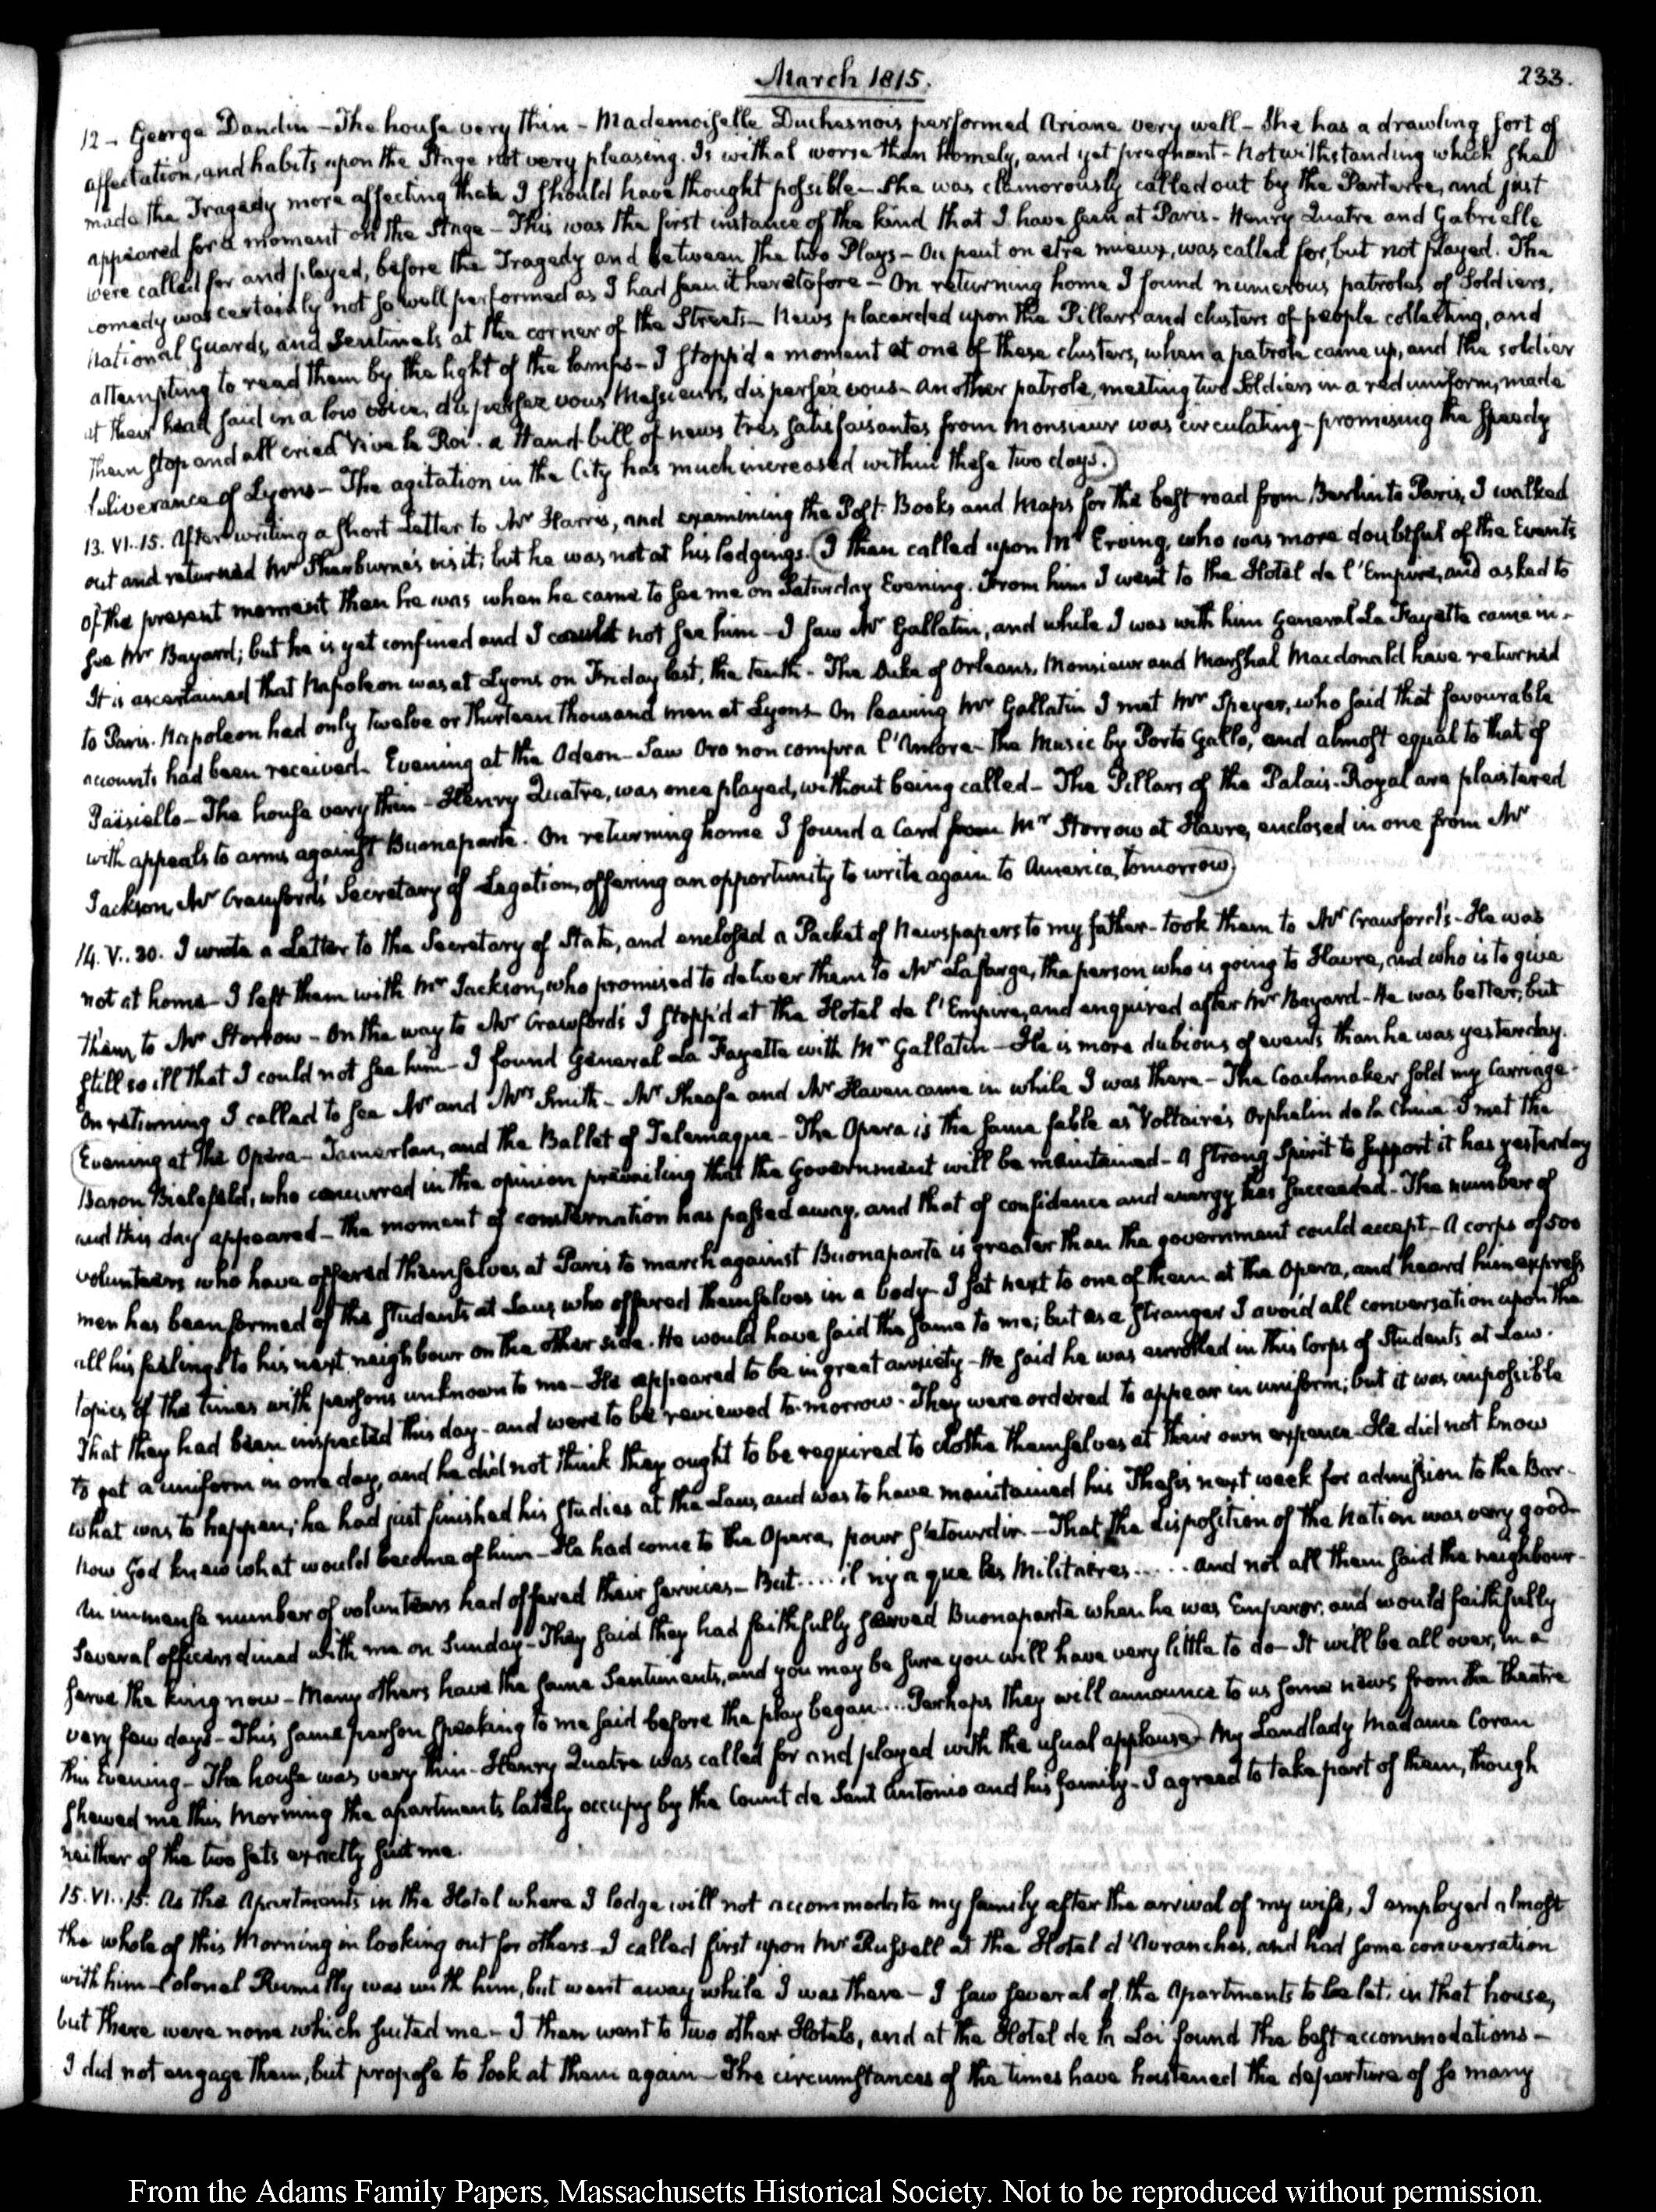 March 1815.
233.
12 - George Dandin - The house very thin - Mademoiselle Duchesnois performed Ariane very well - She has a drawling sort of
affectation, and habits upon the Stage not very pleasing. Is withal worse than homely, and yet pregnant - Notwithstanding which she
made the Tragedy more affecting than I should have thought possible - She was clamorously called out by the Parterre, and just
appeared for a moment on the Stage - This was the first instance of the kind that I have seen at Paris - Henry Quatre and Gabrielle
were called for and played, before the Tragedy and between the two Plays - Ou peut on etre mieux, was called for, but not played. The
comedy was certainly not so well performed as I had seen it heretofore - On returning home I found numerous patroles of Soldiers,
National Guards, and Sentinels at the corner of the Streets - News placarded upon the Pillars and clusters of people collecting, and
attempting to read them by the light of the lamps - I stopp'd a moment at one of these clusters, when a patrole came up, and the soldier
at their head said in a low voice, dispersez vous Messieurs, dispersez vous - Another patrole, meeting two Soldiers in a red uniform, made
them stop and all cried Vive le Roi. A Hand-bill of news tres satisfaisantes from Monsieur was circulating - promising the speedy
deliverance of Lyons - The agitation in the City has much increased within these two days.)
13. VI..15. After writing a short Letter to Mr Harris, and examining the Post-Books and Maps for the best road from Berlin to Paris, I walked
out and returned Mr Sherburne's visit; but he was not at his lodgings. (I then called upon Mr Erving, who was more doubtful of the Events
of the present moment than he was when he came to see me on Saturday Evening. From him I went to the Hotel de l'Empire, and asked to
see Mr Bayard; but he is yet confined and I could not see him - I saw Mr Gallatin, and while I was with him General La Fayette came in -
It is ascertained that Napoleon was at Lyons on Friday last, the tenth - The Duke of Orleans, Monsieur and Marshal Macdonald have returned
to Paris. Napoleon had only twelve or thirteen thousand men at Lyons - On leaving Mr Gallatin I met Mr Speyer, who said that favourable
accounts had been received. Evening at the Odeon - Saw Oro non compra l'Amore - The Music by Porto Gallo, and almost equal to that of
Paisiello - The house very thin - Henry Quatre, was once played, without being called - The Pillars of the Palais-Royal are plaistered
with appeals to arms against Buonaparte. On returning home I found a Card from Mr Storrow at Havre, enclosed in one from Mr
Jackson, Mr Crawford's Secretary of Legation, offering an opportunity to write again to America, tomorrow)
14. V..30. I wrote a Letter to the Secretary of State, and enclosed a Packet of Newspapers to my father - took them to Mr Crawford's - He was
not at home - I left them with Mr Jackson, who promised to deliver them to Mr Lafarge, the person who is going to Havre, and who is to give
them to Mr Storrow - On the way to Mr Crawford's I stopp'd at the Hotel de l'Empire, and enquired after Mr Bayard - He was better; but
still so ill that I could not see him - I found General La Fayette with Mr Gallatin - He is more dubious of events than he was yesterday.
On returning I called to see Mr and Mrs Smith - Mr Sheafe and Mr Haven came in while I was there - The Coachmaker sold my Carriage -
(Evening at the Opera - Tamerlan, and the Ballet of Telemaque - The Opera is the same fable as Voltaire's Orphelin de la Chine - I met the
Baron Bielefeld, who concurred in the opinion prevailing that the Government will be maintained - A strong Spirit to support it has yesterday
and this day appeared - The moment of consternation has passed away, and that of confidence and energy has succeeded - The number of
volunteers who have offered themselves at Paris to march against Buonaparte is greater than the government could accept - A corps of 500
men has been formed of the Students at Law, who offered themselves in a body - I sat next to one of them at the Opera, and heard him express
all his feelings to his next neighbour on the other side. He would have said the same to me; but as a stranger I avoid all conversation upon the
topics of the times with persons unknown to me - He appeared to be in great anxiety - He said he was enrolled in this Corps of Students at Law.
That they had been inspected this day - and were to be reviewed to-morrow. They were ordered to appear in uniform; but it was impossible
to get a uniform in one day, and he did not think they ought to be required to clothe themselves at their own expence - He did not know
what was to happen; he had just finished his studies at the Law, and was to have maintained his Thesis next week for admission to the Bar -
now God knew what would become of him - He had come to the Opera, pour s'etourdir - That the disposition of the Nation was very good -
An immense number of volunteers had offered their services - But.... il n'y a que les Militaires..... and not all them said the neighbour -
Several officers dined with me on Sunday - They said they had faithfully served Buonaparte when he was Emperor, and would faithfully
serve the king now - Many others have the same Sentiments, and you may be sure you will have very little to do - It will be all over, in a
very few days - This same person speaking to me said before the play began.... Perhaps they will announce to us some news from the Theatre
this Evening - The house was very thin - Henry Quatre was called for and played with the usual applause) - My Landlady Madame Coran
shewed me this Morning the apartments lately occupy by the Count de Sant Antonio and his family - I agreed to take part of them, though
neither of the two sets exactly suit me.
15. VI..15. As the Apartments in the Hotel where I lodge will not accommodate my family after the arrival of my wife, I employed almost
the whole of this Morning in looking out for others - I called first upon Mr Russell at the Hotel d'Avranches, and had some conversation
with him - Colonel Rumilly was with him, but went away while I was there - I saw several of the Apartments to be let in that house,
but there were none which suited me - I then went to two other Hotels, and at the Hotel de la Loi found the best accommodations -
I did not engage them, but propose to look at them again - The circumstances of the times have hastened the departure of so many
From the Adams Family Papers, Massachusetts Historical Society. Not to be reproduced without permission.